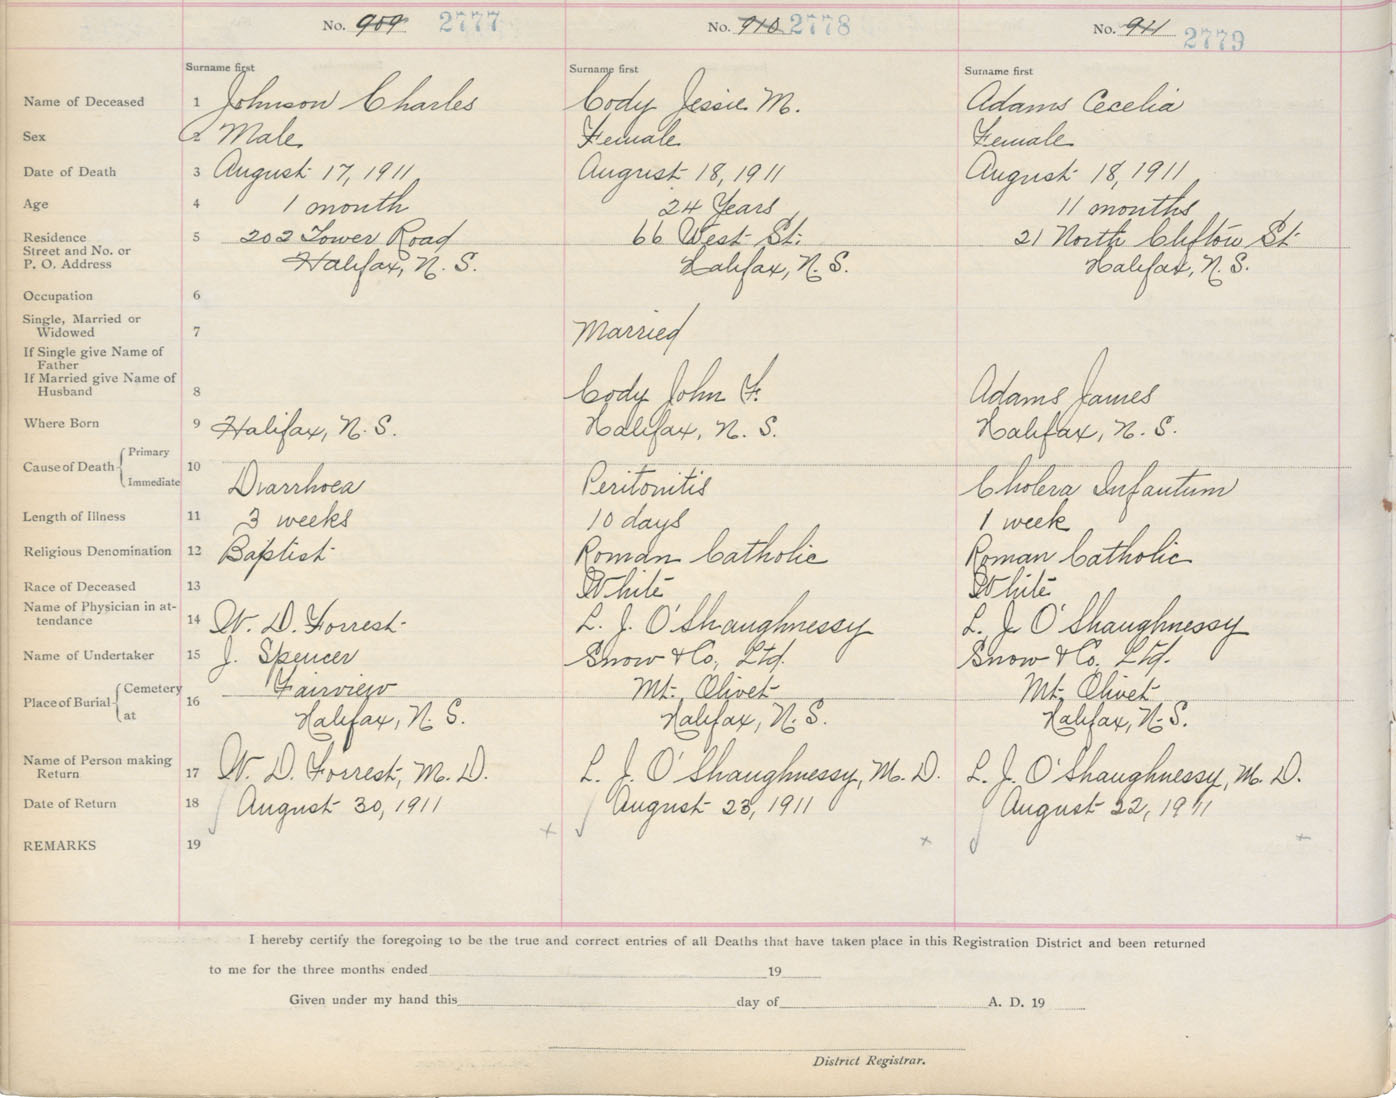 No. 909 2777 No. 910 2778 No. 911 2779
Surname first Surname first Surname first
Name of Deceased 1 Johnson Charles Cody Jessie M. Adams Cecelia
Sex 2 Male Female Female
Date of Death 3 August 17, 1911 August 18, 1911 August 18, 1911
Age 4 1 month 24 Years 11 months
Residence 5 202 Tower Road 66 West St. 21 North Clifton St
Street and No. or
P. O. Address Halifax, N. S. Halifax, N. S. Halifax, N. S.
Occupation 6
Single, Married or
Widowed 7 Married
If Single give Name of
Father
If Married give Name of
Husband 8 Cody John F. Adams James
Where Born 9 Halifax, N. S. Halifax, N. S. Halifax, N. S.
Cause of Death Primary 10
Immediate Diarrhoea Peritonitis Cholera Infantum
Length of Illness 11 3 weeks 10 days 1 week
Religious Denomination 12 Baptist Roman Catholic Roman Catholic
Race of Deceased 13 White White
Name of Physician in at-
tendance 14 W. D. Forrest L. J. O'Shaughnessy L. J. O'Shaughnessy
Name of Undertaker 15 J. Spencer Snow & Co, Ltd. Snow & Co. Ltd.
Place of Burial Cemetery 16 Fairview Mt. Olivet Mt. Olivet
at Halifax, N. S. Halifax, N. S. Halifax, N. S.
Name of Person making
Return 17 W. D. Forrest, M. D. L. J. O'Shaughnessy, M. D. L. J. O'Shaughnessy, M. D.
Date of Return 18 August 30, 1911 August 23, 1911 August 22, 1911
REMARKS 19
I hereby certify the foregoing to be the true and correct entries of all Deaths that have taken place in this Registration District and been returned
to me for the three months ended 19
Given under my hand this day of A. D. 19
District Registrar.